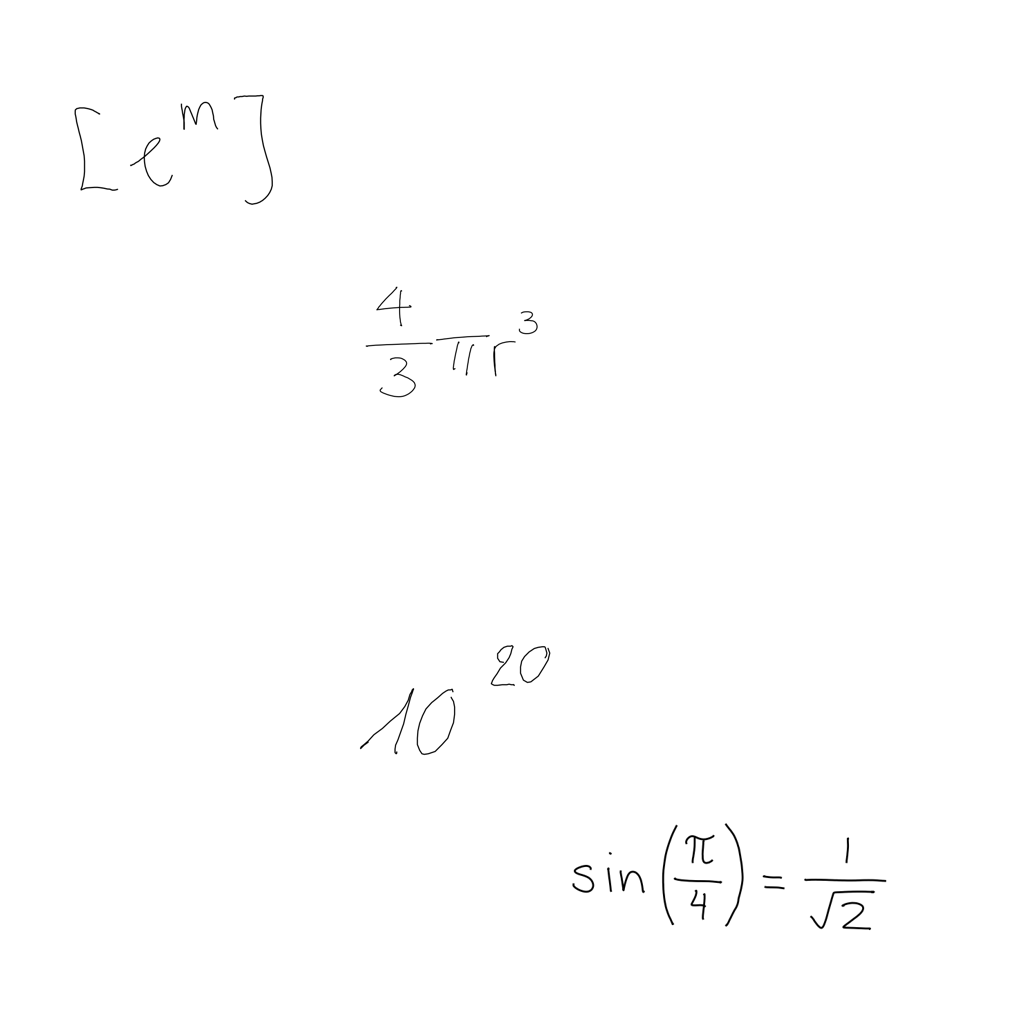 [e^m]
\frac{4}{3}πr^3
10^{20}
sin(\frac{π}{4}) = \frac{1}{\sqrt{2}}